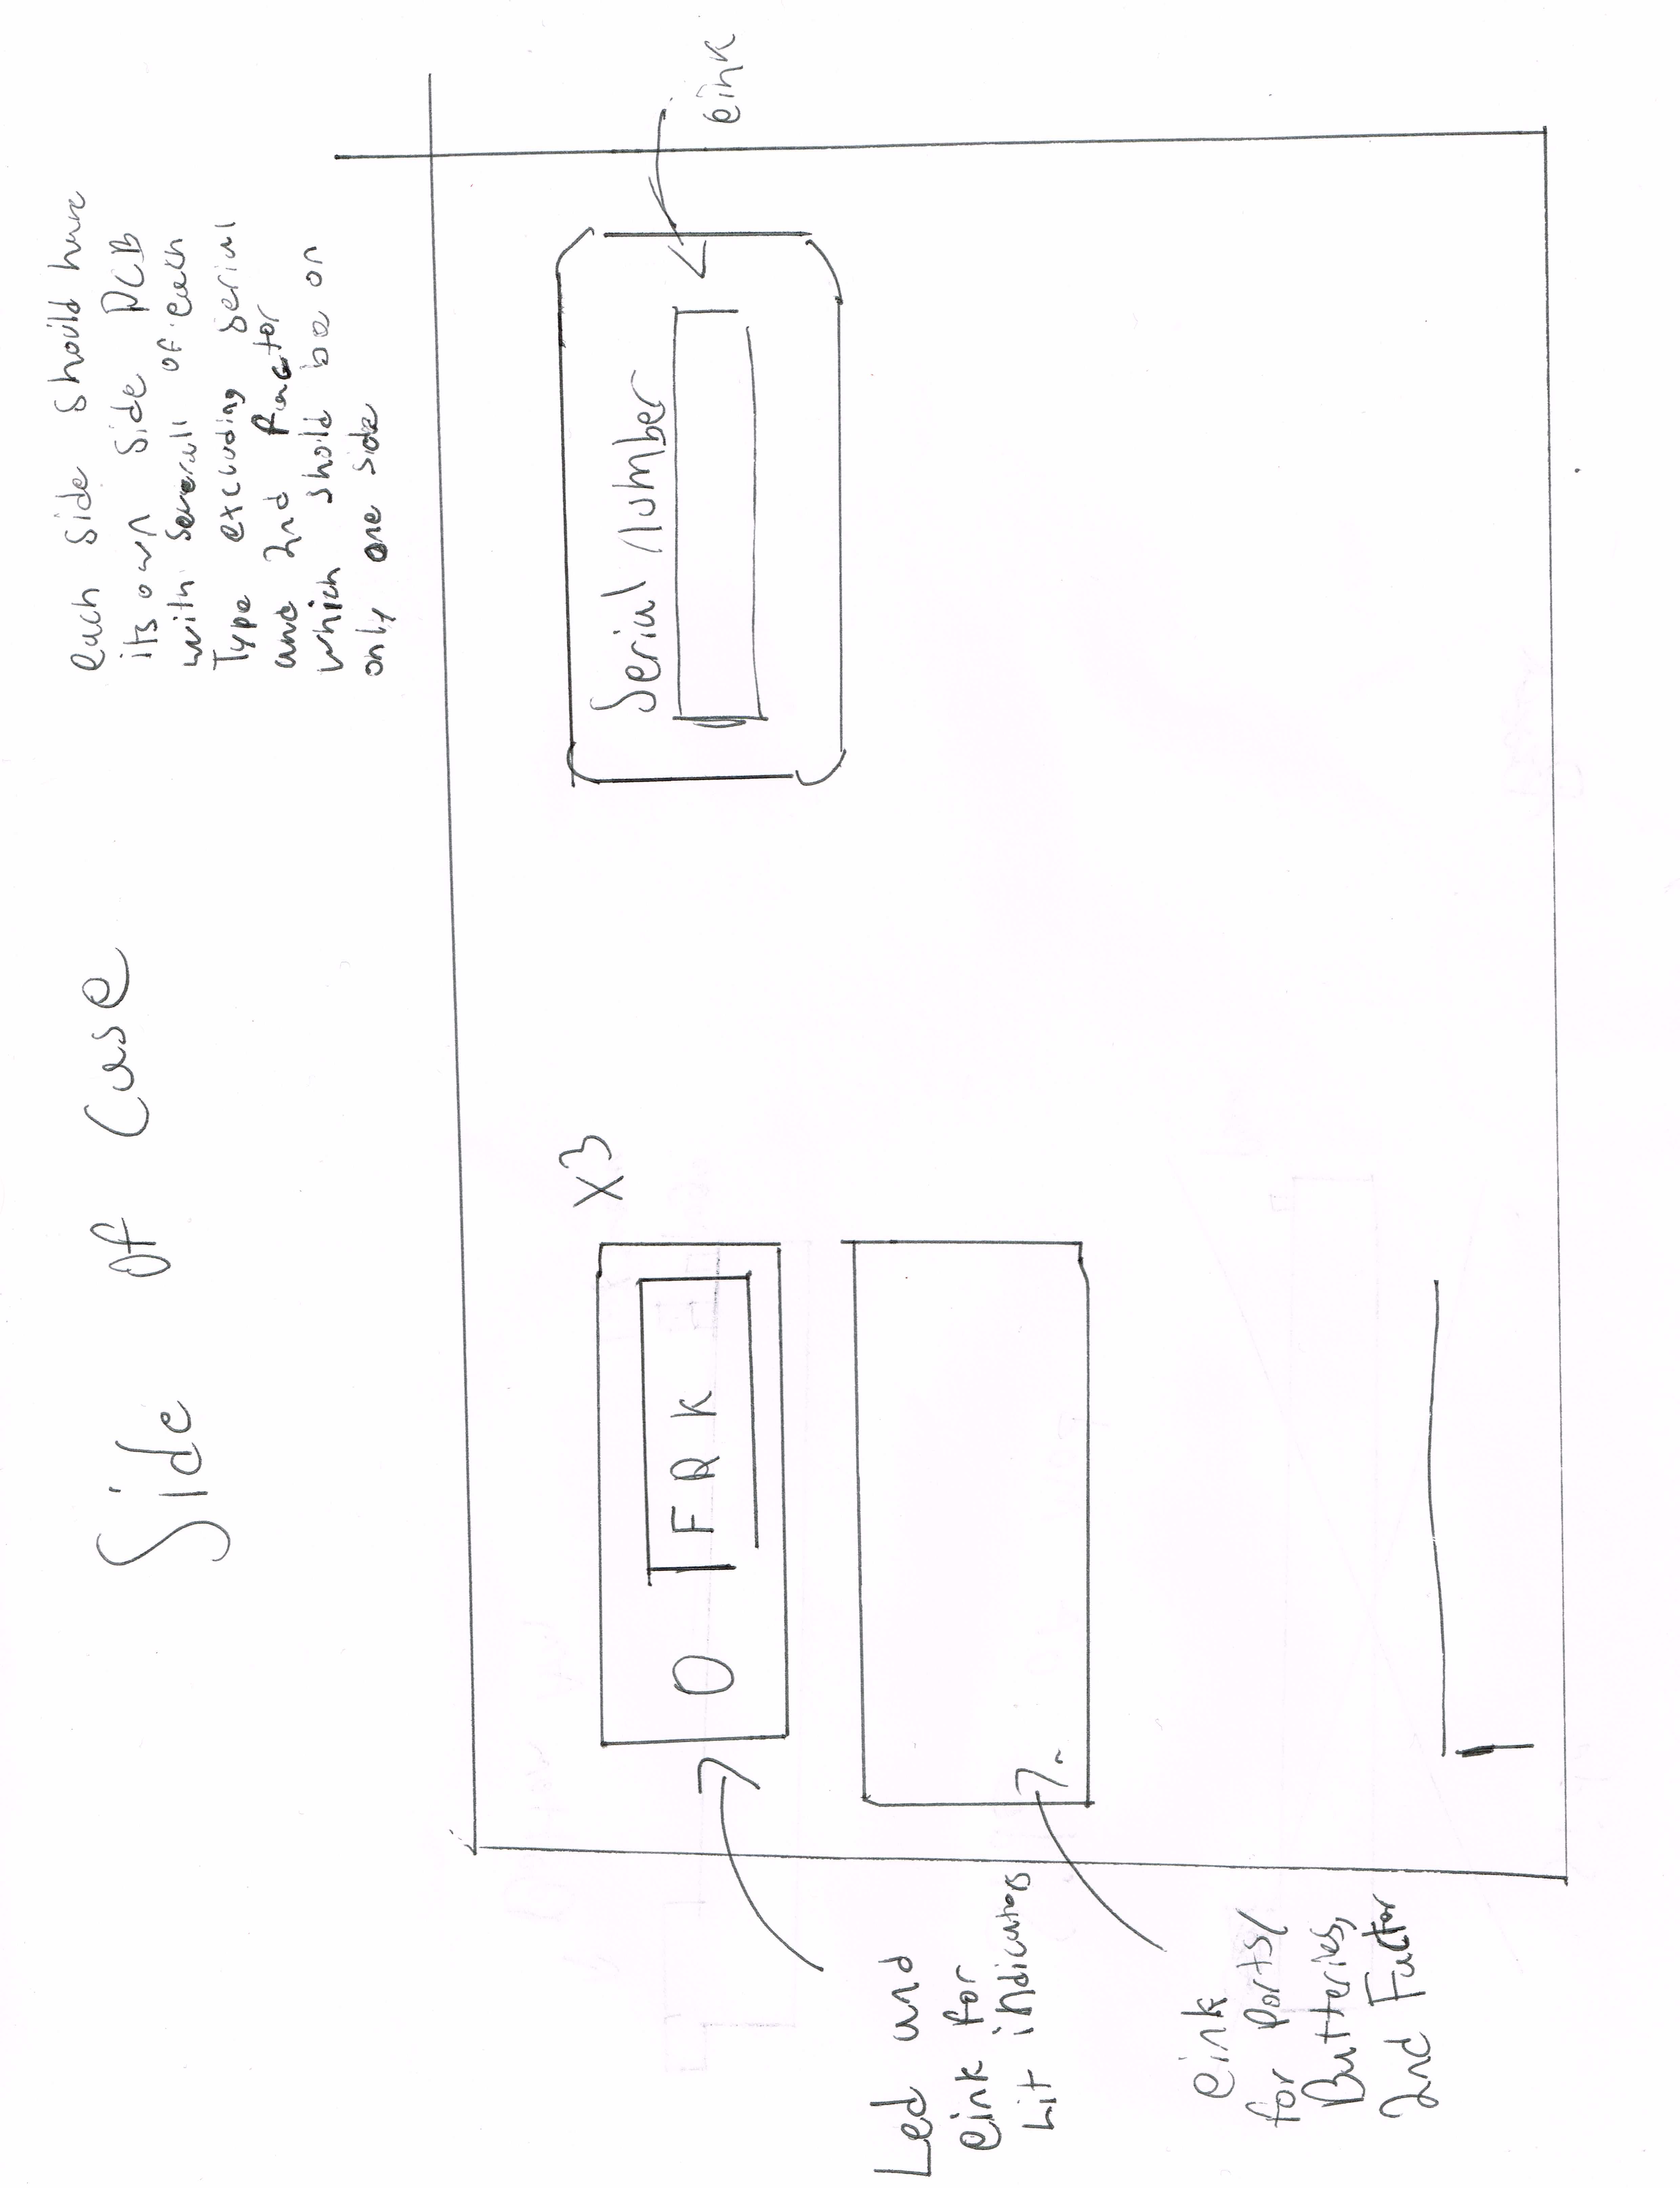 Side of Case
each side should have
its own side PCB
with severall of each
Type excluding serial
and 2nd Factor
which shold be on
only one side
X3
O FRK
Serial number
eink
Led and
eink for
Lit indicators
eink
for Ports/
Batteries,
2nd Factor